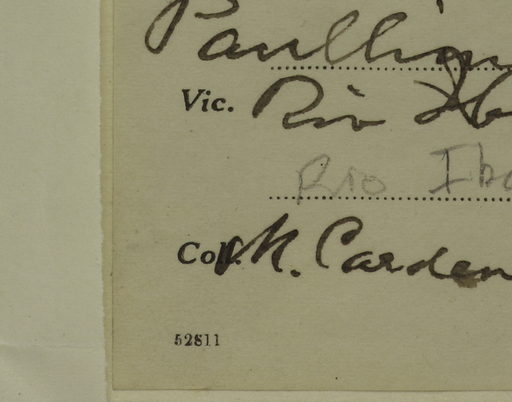 Paullin
Vic. Rio Ib
Rio Iba
Coll. M. Carden
52811